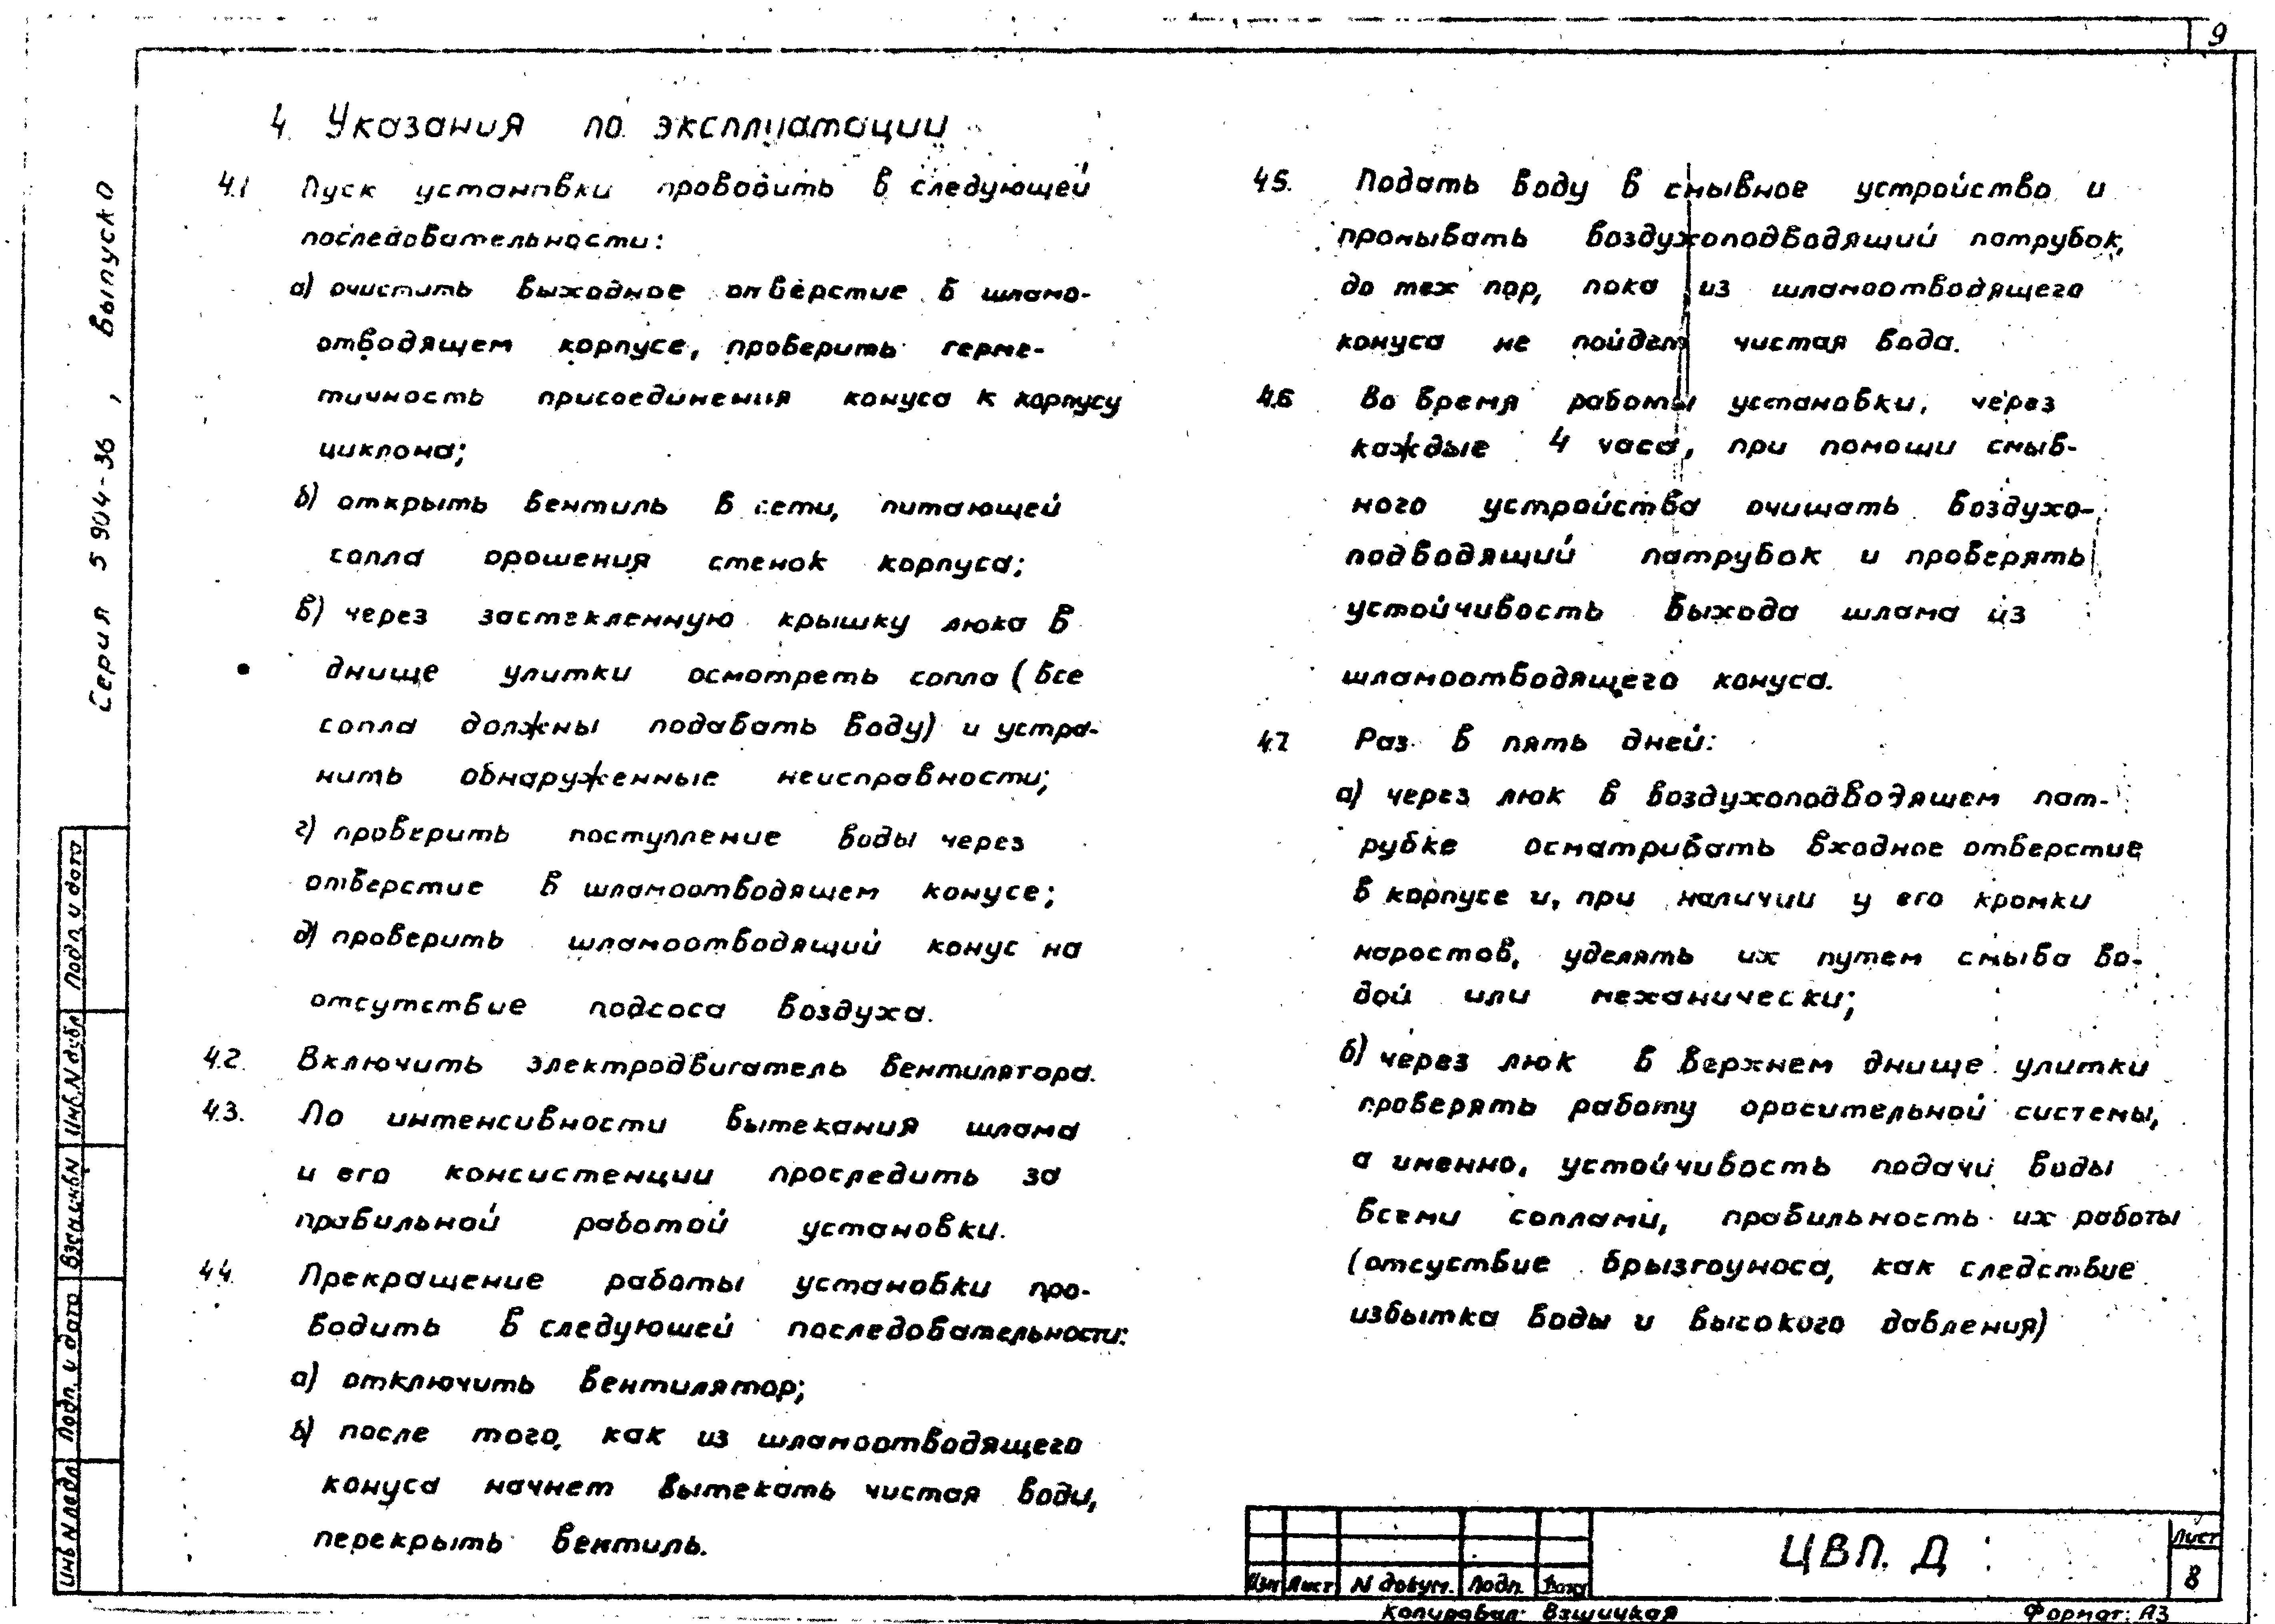 9
4. Указания по эксплуатации
4.1 Пуск установки проводить в следующей
последовательности:
а) очистить выходное отверстие в шламо-
отводящем корпусе, проверить герме-
тичность присоединения конуса к корпусу
циклона;
б) открыть вентиль в сети, питающей
сопла орошения стенок корпуса;
в) через застекленную крышку люка в
днище улитки осмотреть сопла (все
сопла должны подавать воду) и устра-
нить обнаруженные неисправности;
г) проверить поступление воды через
отверстие в шламоотводящем конусе;
д) проверить шламоотводящий конус на
отсутствие подсоса воздуха.
4.2. Включить электродвигатель вентилятора.
4.3. По интенсивности вытекания шлама
и его консистенции проследить за
правильной работой установки.
4.4. Прекращение работы установки про-
водить в следующей последовательности:
а) отключить вентилятор;
б) после того, как из шламоотводящего
конуса начнет вытекать чистая вода,
перекрыть вентиль.
4.5. Подать воду в смывное устройство и
промывать воздухоподводящий патрубок,
до тех пор, пока из шламоотводящего
конуса не пойдет чистая вода.
4.6 Во время работы установки, через
каждые 4 часа, при помощи смыв-
ного устройства очищать воздухо-
подводящий патрубок и проверять
устойчивость выхода шлама из
шламоотводящего конуса.
4.7 Раз в пять дней:
а) через люк в воздухоподводящем пат-
рубке осматривать входное отверстие
в корпусе и, при наличии у его кромки
наростов, уделять их путем смыва во-
дой или механически;
б) через люк в верхнем днище улитки
проверять работу оросительной системы,
а именно, устойчивость подачи воды
всеми соплами, правильность их работы
(отсуствие брызгоуноса, как следствие
избытка воды и высокого давления)
Серия 5904-36, Выпуск 0
Подп. и дата
Инв. N дубл
Взам. инв N
Подп. и дата
Инв N подл
Изм Лист N докум. Подп. Дата
ЦВП. Д
Лист
8
Копировал:
Формат: А3